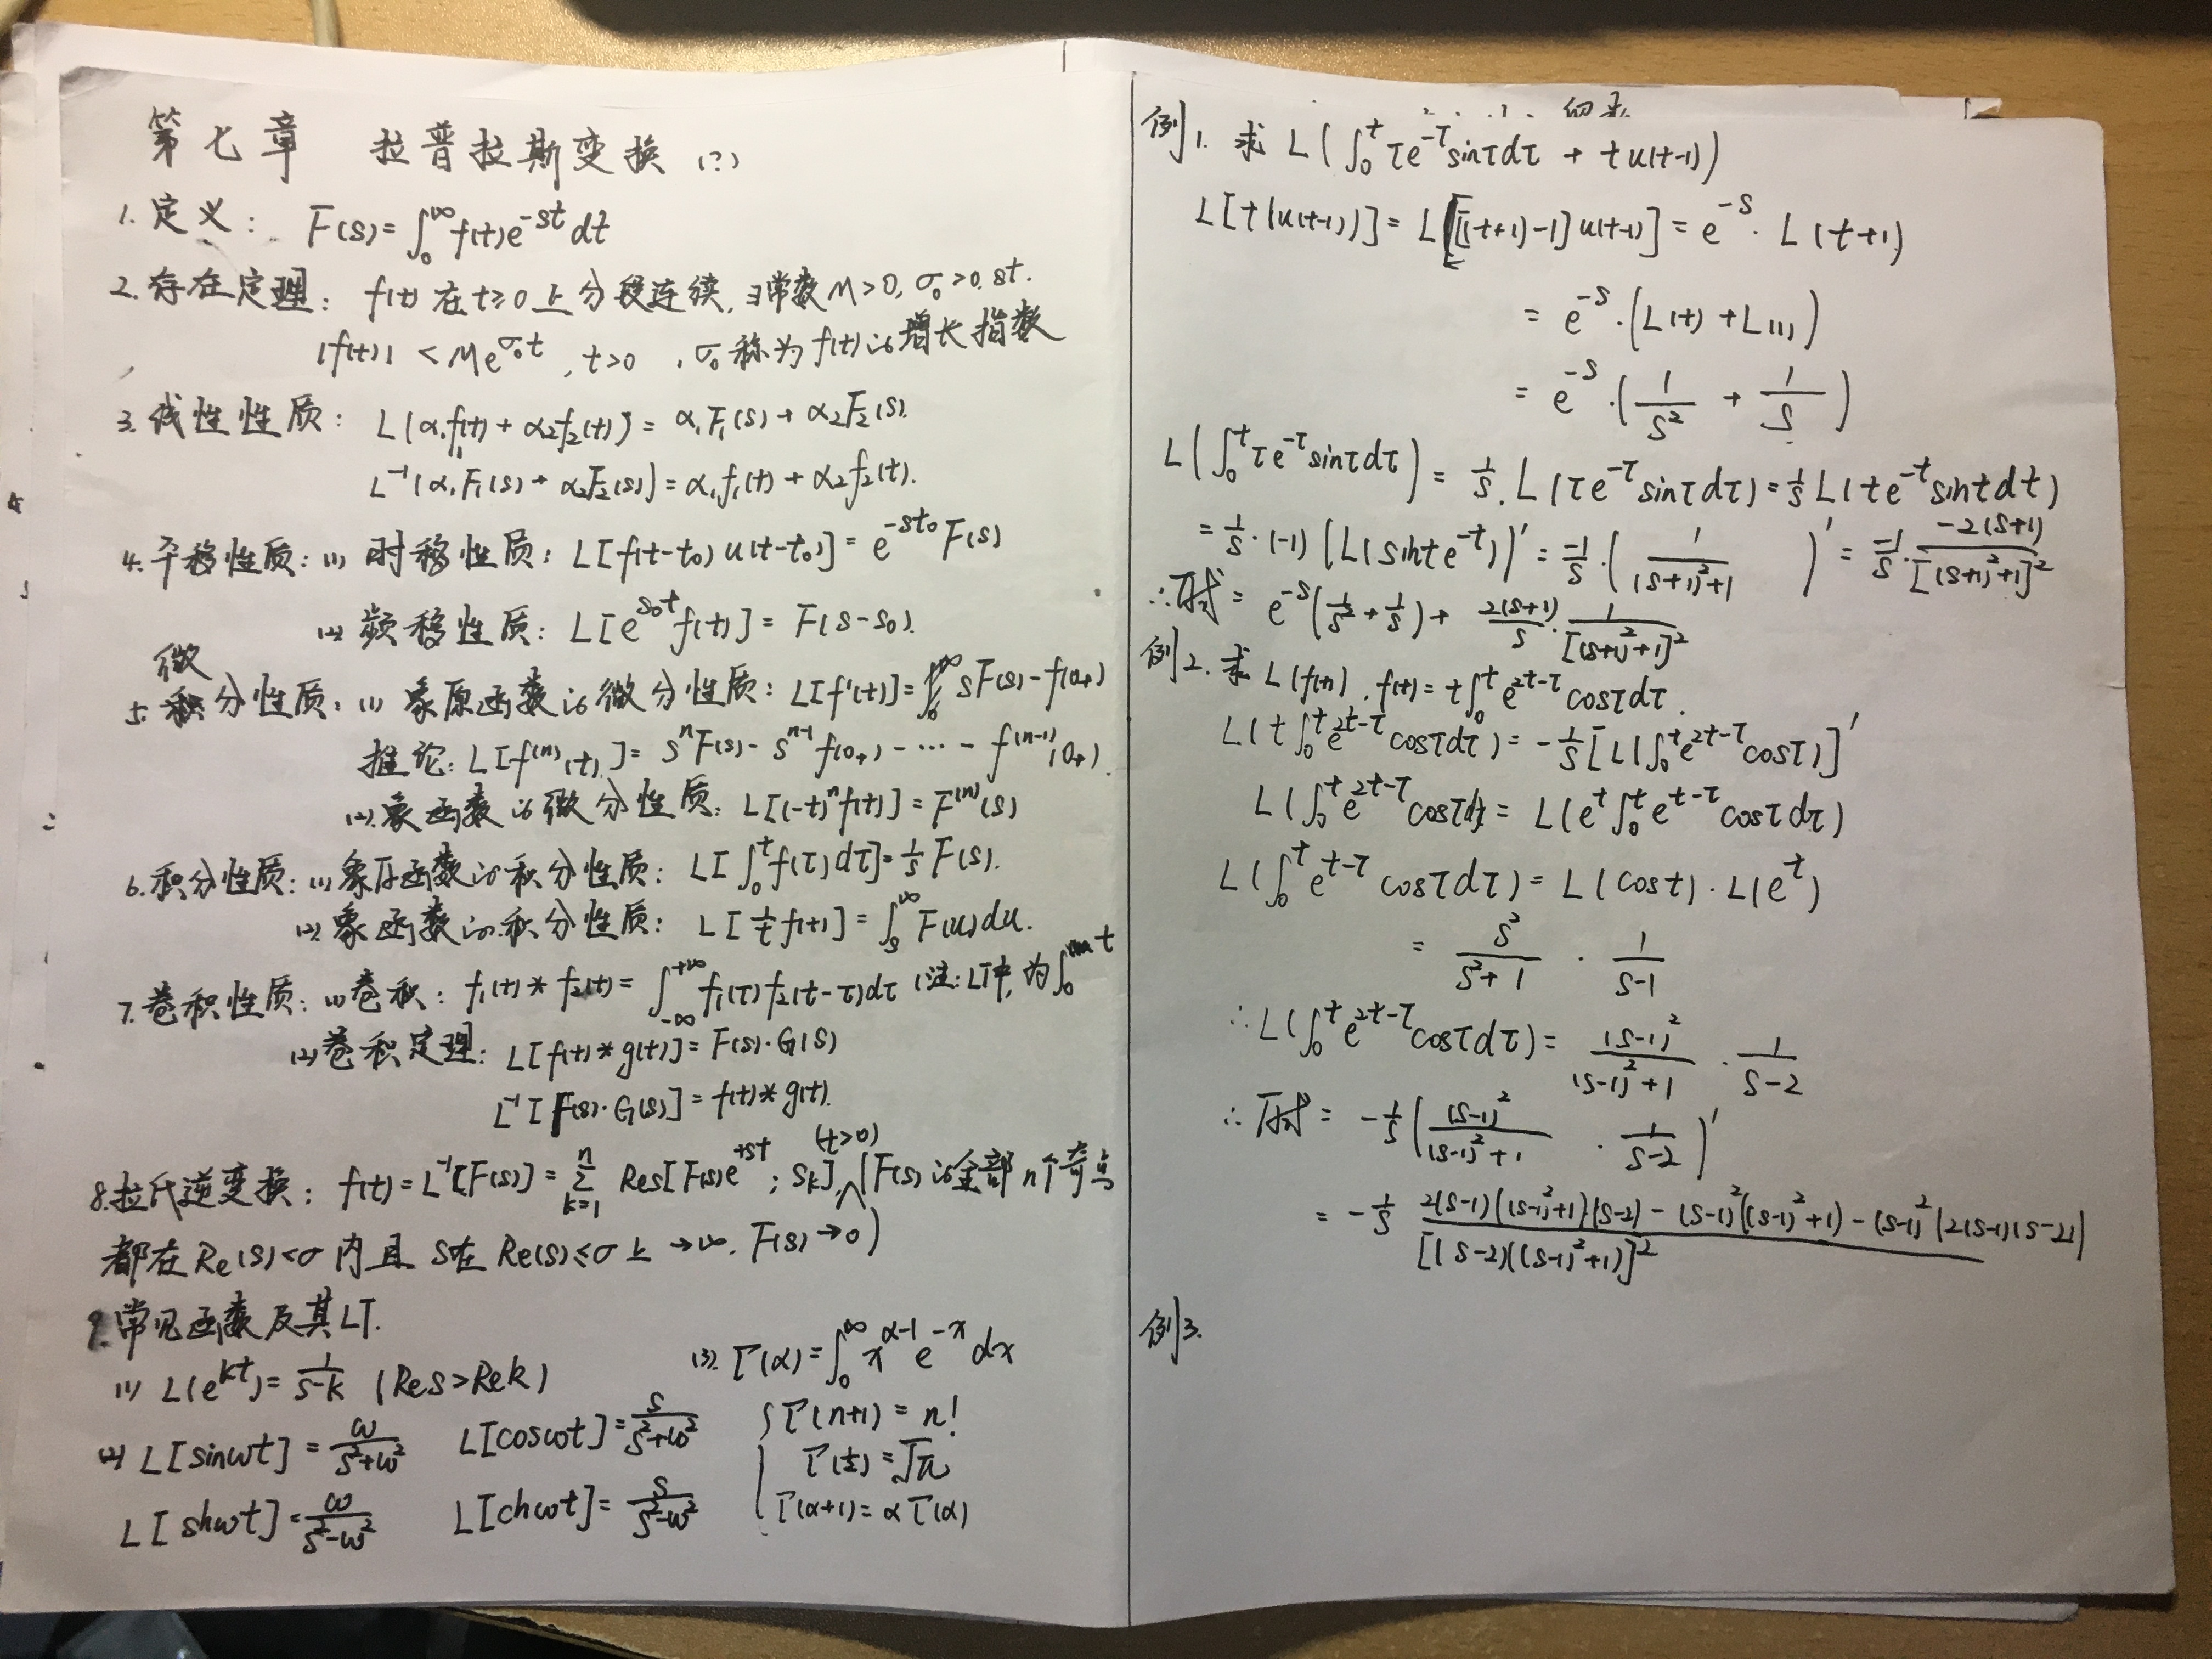 第七章 拉普拉斯变换 (?)
1. 定义: F(s)=∫₀^∞ f(t)e^{-st}dt
2. 存在定理: f(t) 在 t≥0 上分段连续, ∃常数 M>0, σ₀>0, st.
|f(t)| < Me^{σ₀t}, t>0, σ₀ 称为 f(t) 的增长指数
3. 线性性质: L(α₁f₁(t)+α₂f₂(t))=α₁F₁(s)+α₂F₂(s).
L⁻¹(α₁F₁(s)+α₂F₂(s))=α₁f₁(t)+α₂f₂(t).
4. 平移性质: (1) 时移性质: L[f(t-t₀)u(t-t₀)]=e^{-st₀}F(s)
(2) 频移性质: L[e^{s₀t}f(t)]=F(s-s₀).
5. 微分性质: (1) 象原函数的微分性质: L[f'(t)]=sF(s)-f(0₊)
推论: L[f^{(n)}(t)]=sⁿF(s)-s^{n-1}f(0₊)-⋯-f^{(n-1)}(0₊).
(2) 象函数的微分性质: L[(-t)ⁿf(t)]=F^{(n)}(s)
6. 积分性质: (1) 象原函数的积分性质: L[∫₀^t f(τ)dτ]=1/s F(s).
(2) 象函数的积分性质: L[1/t f(t)]=∫ₛ^∞ F(u)du.
7. 卷积性质: (1) 卷积: f₁(t)*f₂(t)=∫_{-∞}^{+∞} f₁(τ)f₂(t-τ)dτ (注: LT中, 为∫₀^t
(2) 卷积定理: L[f(t)*g(t)]=F(s)·G(s)
L⁻¹[F(s)·G(s)]=f(t)*g(t).
8. 拉氏逆变换: f(t)=L⁻¹[F(s)]=∑_{k=1}^n Res[F(s)e^{+st}; s_k], (t>0) (F(s)的全部n个奇点
都在Re(s)<σ内且 s在Re(s)≤σ上→∞, F(s)→0)
9. 常见函数及其LT.
(1) L(e^{kt})=1/(s-k) (Res>Rek)
(2) L[sinωt]=ω/(s²+ω²) L[cosωt]=s/(s²+ω²)
L[shωt]=ω/(s²-ω²) L[chωt]=s/(s²-ω²)
(3). Γ(α)=∫₀^∞ x^{α-1}e^{-x}dx
{Γ(n+1)=n!
Γ(1/2)=√π
Γ(α+1)=αΓ(α)
例1. 求 L(∫₀^t τe^{-τ}sinτdτ + tu(t-1))
L[t(u(t-1))]=L[[(t+1)-1]u(t-1)]=e^{-s}·L(t+1)
=e^{-s}·(L(t)+L(1))
=e^{-s}·(1/s²+1/s)
L(∫₀^t τe^{-τ}sinτdτ)=1/s·L(τe^{-τ}sinτdτ)=1/s L(te^{-t}sintdt)
=1/s·(-1)(L(sinte^{-t}))'=-1/s·(1/((s+1)²+1))'=-1/s·-2(s+1)/[(s+1)²+1]²
∴原式=e^{-s}(1/s²+1/s)+2(s+1)/s·1/[(s+1)²+1]²
例2. 求L(f(t)), f(t)=t∫₀^t e^{2t-τ}cosτdτ.
L(t∫₀^t e^{2t-τ}cosτdτ)=-1/s[L(∫₀^t e^{2t-τ}cosτ)]'
L(∫₀^t e^{2t-τ}cosτdτ)=L(e^t∫₀^t e^{t-τ}cosτdτ)
L(∫₀^t e^{t-τ}cosτdτ)=L(cost)·L(e^t)
=s²/(s²+1)·1/(s-1)
∴L(∫₀^t e^{2t-τ}cosτdτ)=(s-1)²/((s-1)²+1)·1/(s-2)
∴原式=-1/s((s-1)²/((s-1)²+1)·1/(s-2))'
=-1/s (2(s-1)((s-1)²+1)(s-2)-(s-1)²((s-1)²+1)-(s-1)²(2(s-1)(s-2))/[(s-2)((s-1)²+1)]²
例3.